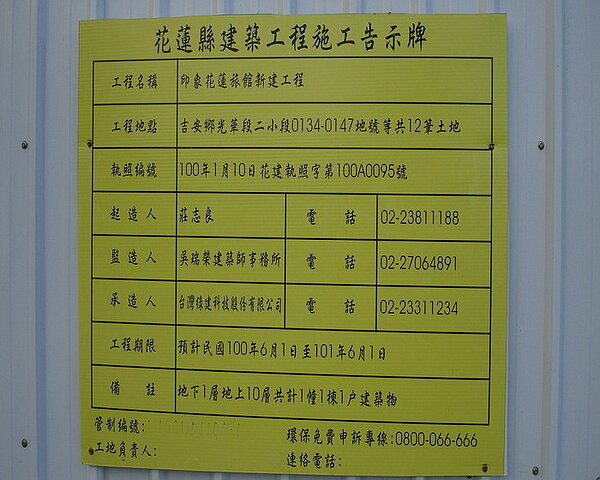 花蓮縣建築工程施工告示牌
工程名稱 印象花蓮旅館新建工程
工程地點 吉安鄉光華段二小段0134-0147地號等共12筆土地
執照編號 100年1月10日花建執照字第100A0095號
起造人 莊志良 電話 02-23811188
監造人 吳瑞榮建築師事務所 電話 02-27064891
承造人 台灣綠建科技股份有限公司 電話 02-23311234
工程期限 預計民國100年6月1日至101年6月1日
備註 地下1層地上10層共計1幢1棟1戶建築物
管制編號: 環保免費申訴專線:0800-066-666
工地負責人: 連絡電話: